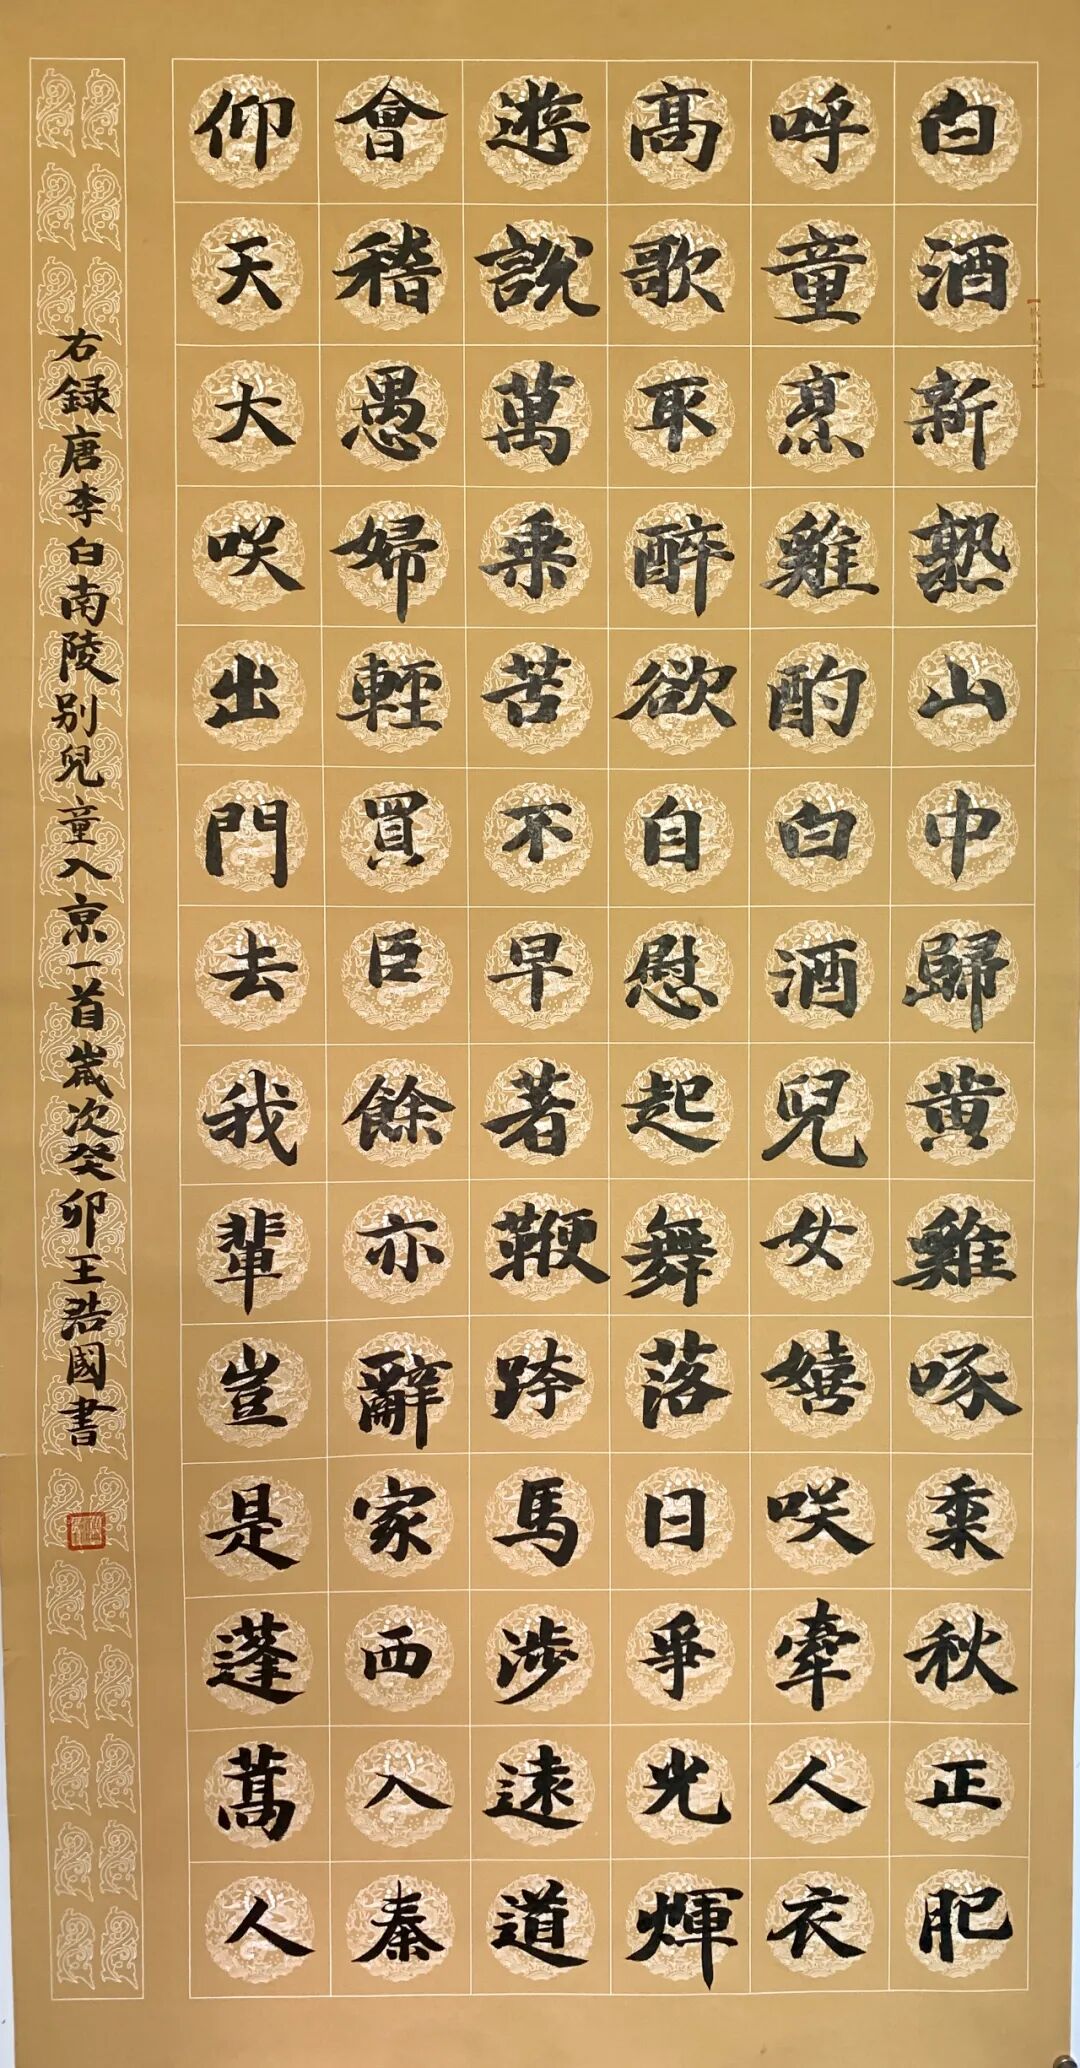 白酒新熟山中歸黄雞啄秉秋正肥
呼童烹雞酌白酒兒女嬉咲牽人衣
高歌取醉欲自慰起舞落日爭光輝
遊説萬乗苦不早著鞭跨馬涉遠道
會稽愚婦輕買臣餘亦辭家西入秦
仰天大咲出門去我輩豈是蓬蒿人
右録唐李白南陵别兒童入京一首嵗次癸卯王浩國書